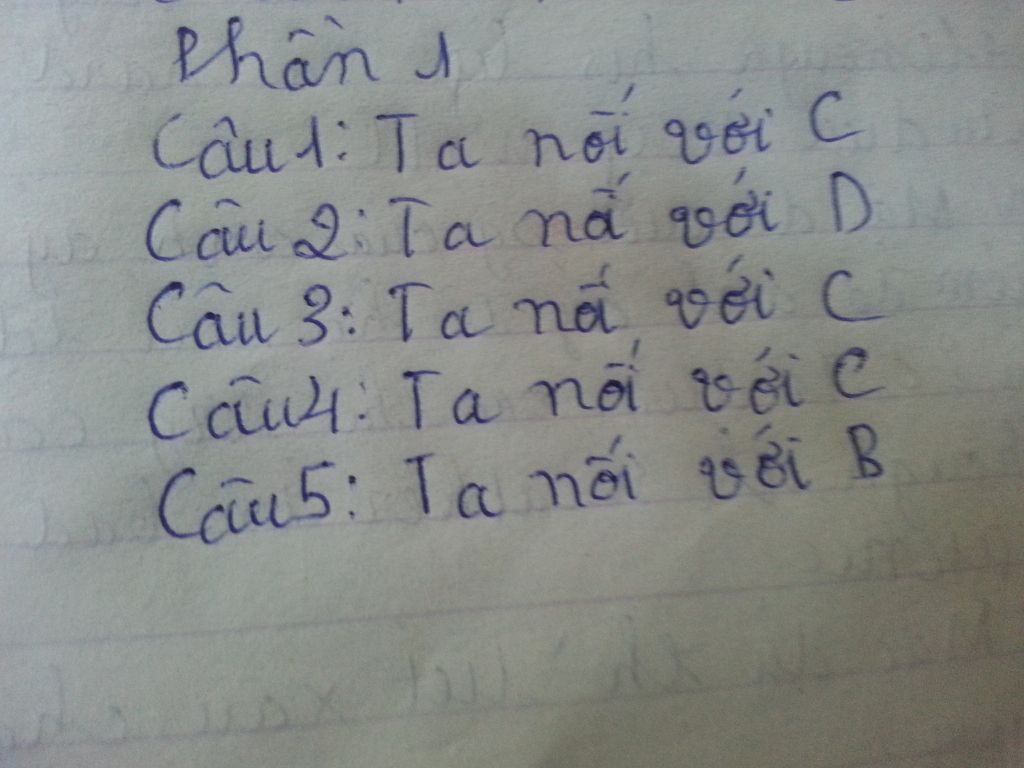 Phần 1
Câu 1: Ta nối với C
Câu 2: Ta nối với D
Câu 3: Ta nối với C
Câu 4: Ta nối với C
Câu 5: Ta nối với B